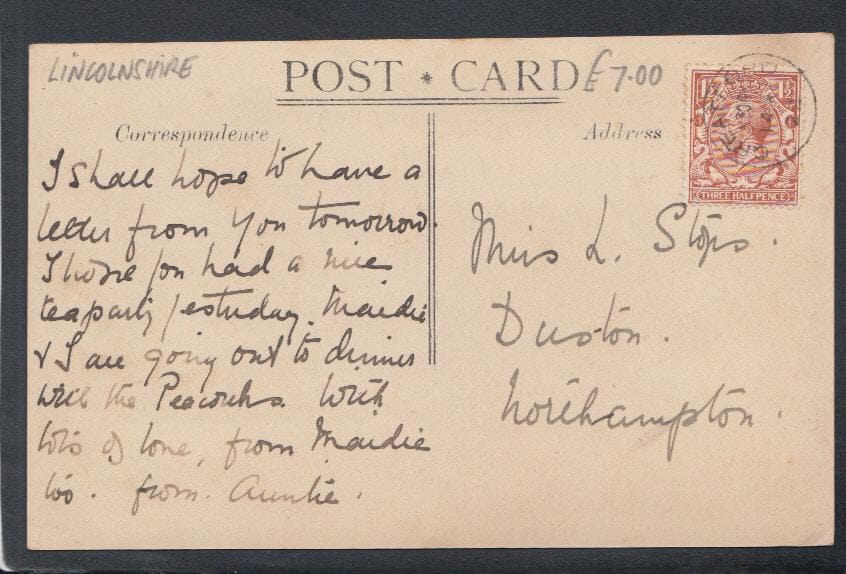 LINCOLNSHIRE
POST * CARD
£7.00
Correspondence
Address
1½
1½
THREE HALFPENCE
I shall hope to have a
letter from you tomorrow.
I hope you had a nice
teaparty yesterday. Maidie
& I are going out to dinner
with the Peacocks. With
lots of love, from Maidie
too. from. Auntie.
Miss L. Stops.
Duston.
Northampton.